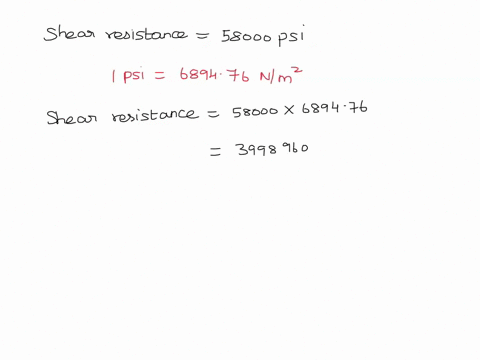 Shear resistance = 58000 psi
1 psi = 6894.76 N/m²
Shear resistance = 58000 × 6894.76
= 3998 960